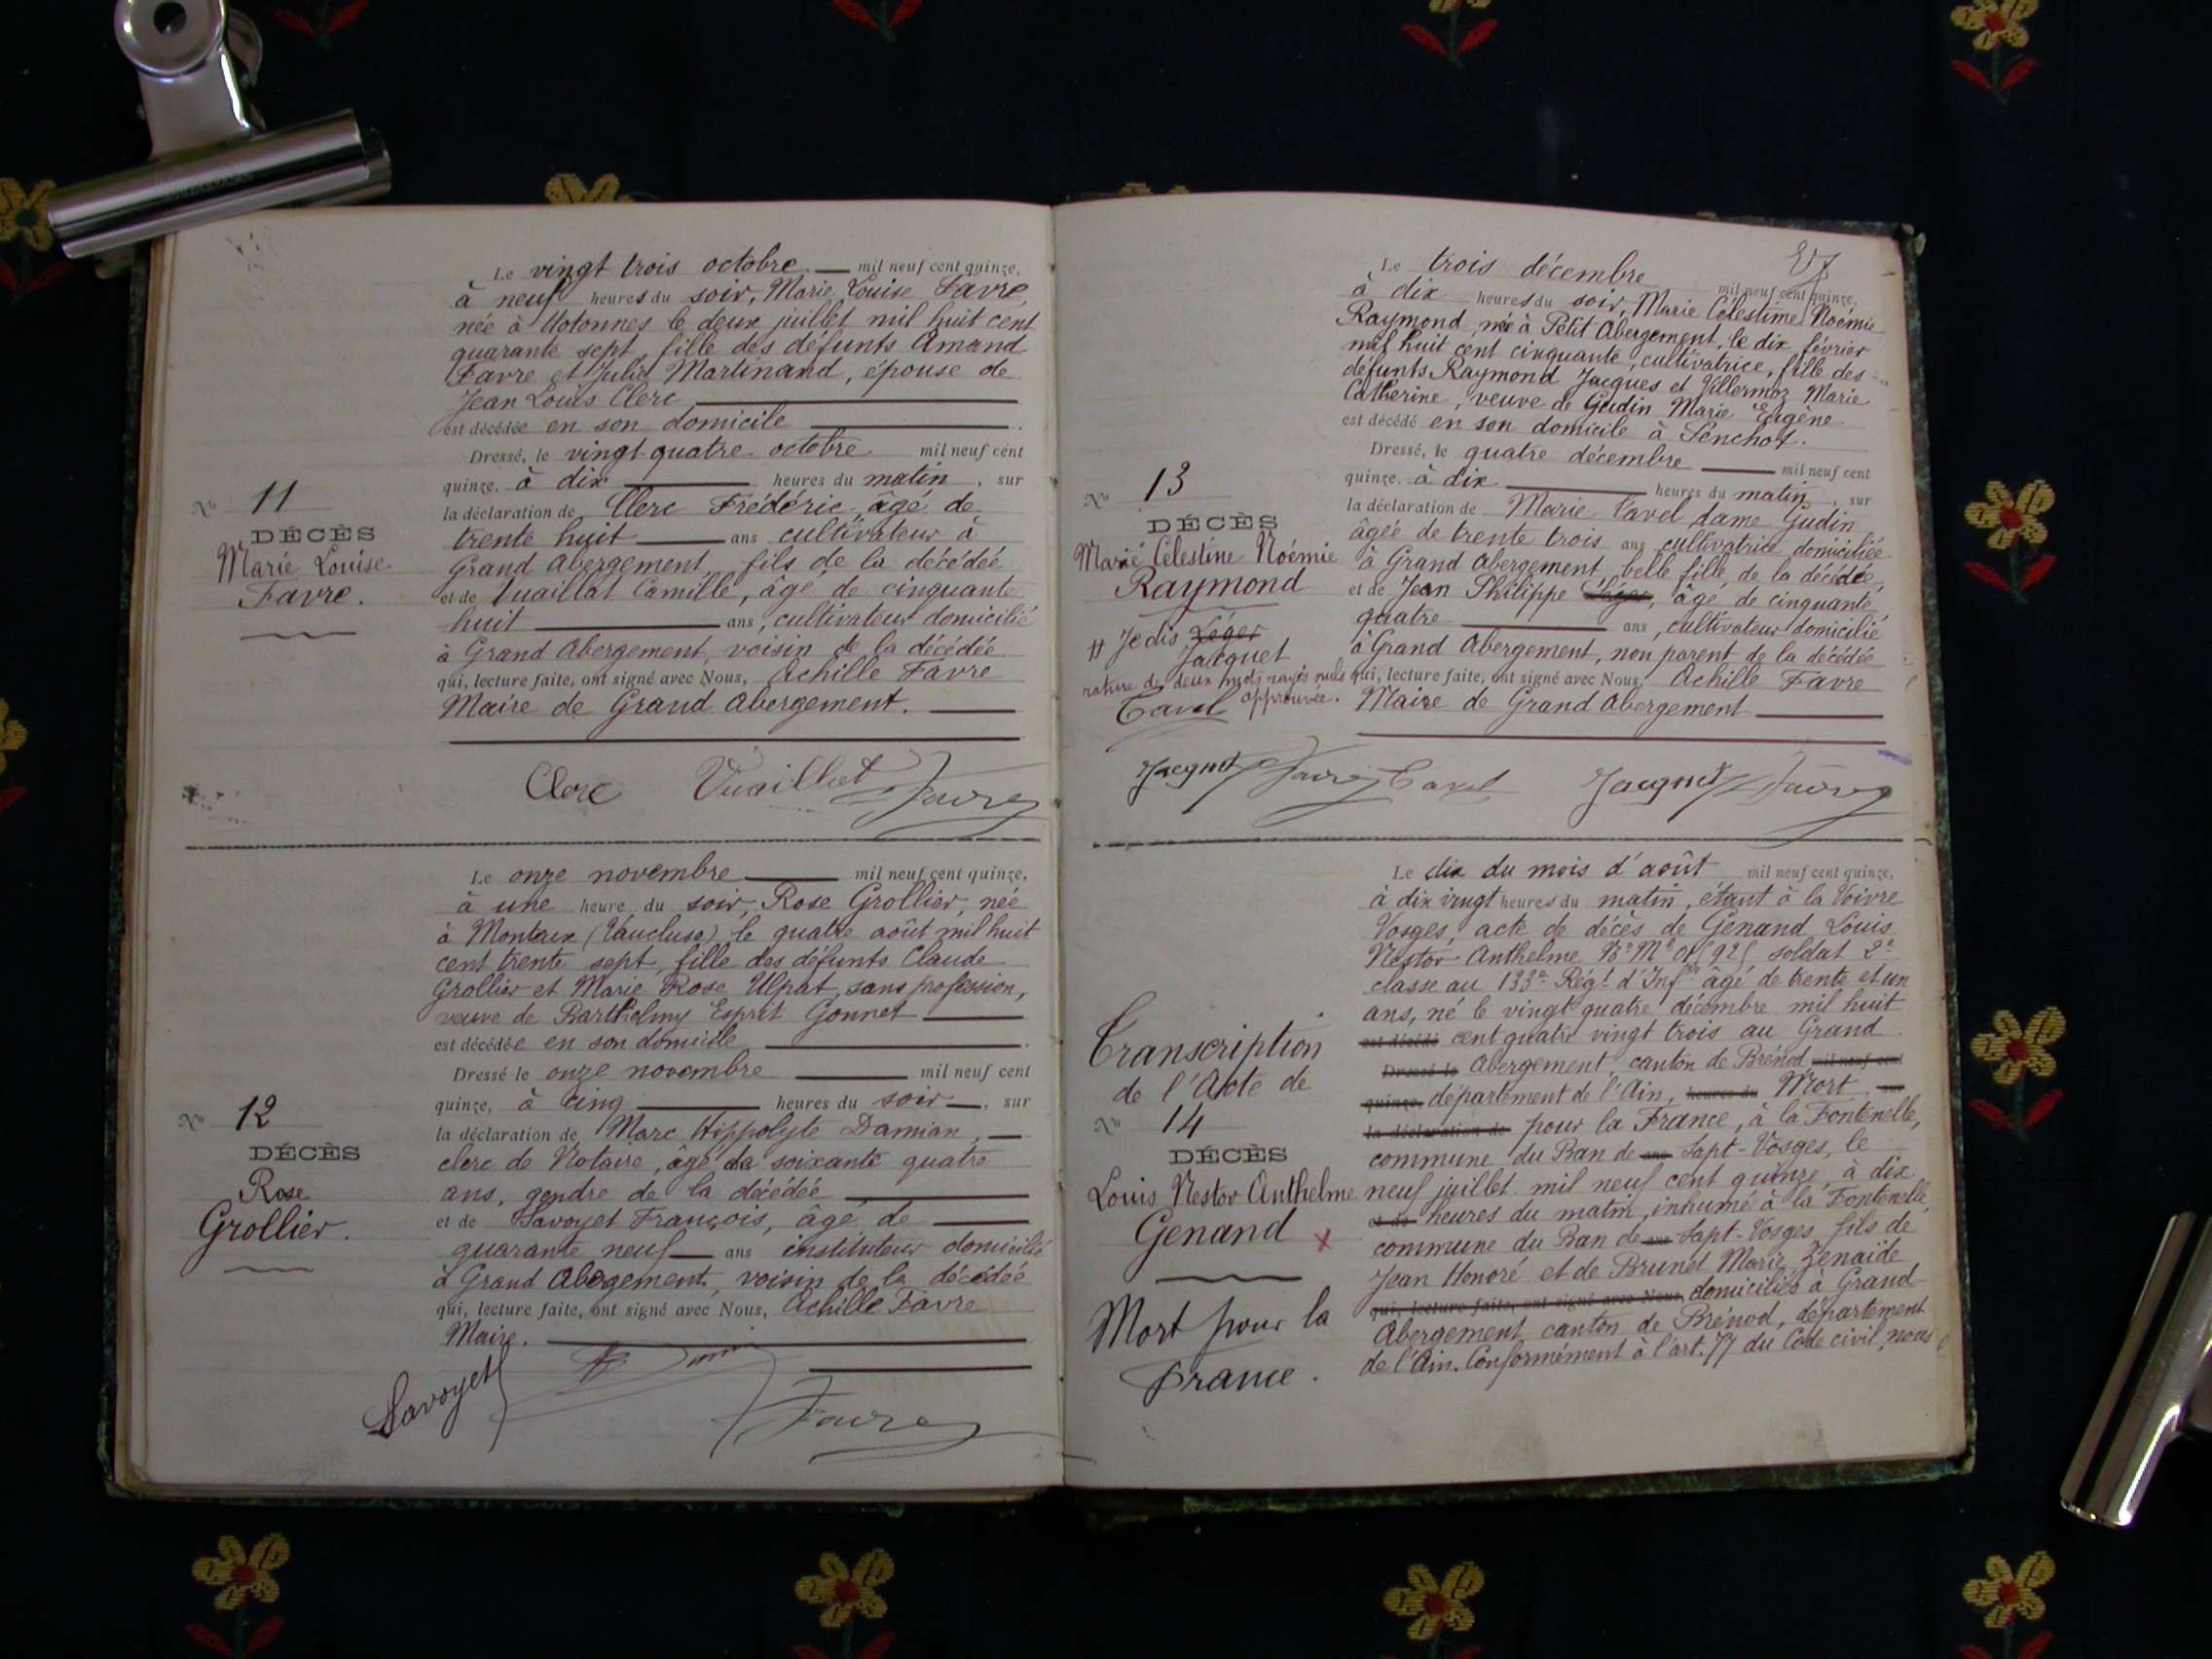 Le vingt trois octobre — mil neuf cent quinze,
à neuf heures du soir, Marie Louise Favre,
née à Hotonnes le deux juillet mil huit cent
quarante sept, fille des défunts Amand
Favre et Julie Martinand, épouse de
Jean Louis Clerc
est décédée en son domicile
Dressé, le vingt quatre octobre mil neuf cent
quinze, à dix heures du matin, sur
la déclaration de Clerc Frédéric, âgé de
trente huit ans cultivateur à
Grand Abergement, fils de la décédée
et de Vuaillat Camille, âgé de cinquante
huit ans, cultivateur domicilié
à Grand Abergement, voisin de la décédée
qui, lecture faite, ont signé avec Nous, Achille Favre
Maire de Grand Abergement.
No 11
DÉCÈS
Marie Louise
Favre.
Clerc Vuaillat Favre
Le onze novembre mil neuf cent quinze,
à une heure du soir, Rose Grollier, née
à Monteux (Vaucluse) le quatre août mil huit
cent trente sept, fille des défunts Claude
Grollier et Marie Rose Ulpat, sans profession,
veuve de Barthélmy Esprit Gonnet
est décédée en son domicile
Dressé le onze novembre mil neuf cent
quinze, à cinq heures du soir, sur
la déclaration de Marc Hippolyte Damian,
clerc de Notaire, âgé de soixante quatre
ans, gendre de la décédée
et de Savoyet François, âgé de
quarante neuf ans instituteur domicilié
à Grand Abergement, voisin de la décédée
qui, lecture faite, ont signé avec Nous, Achille Favre
Maire.
No 12
DÉCÈS
Rose
Grollier.
Savoyet Favre
Le trois décembre mil neuf cent quinze,
à dix heures du soir, Marie Célestine Noémie
Raymond, née à Petit Abergement, le dix février
mil huit cent cinquante, cultivatrice, fille des
défunts Raymond Jacques et Villermoz Marie
Catherine, veuve de Gudin Marie Eugène
est décédé en son domicile à
Dressé, le quatre décembre mil neuf cent
quinze, à dix heures du matin, sur
la déclaration de Marie Tavel dame Gudin
âgée de trente trois ans cultivatrice domiciliée
à Grand Abergement, belle fille de la décédée
et de Jean Philippe Léger, âgé de cinquante
quatre ans, cultivateur domicilié
à Grand Abergement, non parent de la décédée
qui, lecture faite, ont signé avec Nous, Achille Favre
Maire de Grand Abergement
No 13
DÉCÈS
Marie Célestine Noémie
Raymond
# Je dis Léger
Jacquet
rature de deux mots rayés nuls
approuvée.
Tavel
Jacquet Favre Tavel Jacquet Favre
Le dix du mois d'août mil neuf cent quinze,
à dix vingt heures du matin, étant à la Voivre
Vosges, acte de décès de Genand Louis
Nestor Anthelme soldat 2e
classe au 133e Régt d'Infie âgé de trente et un
ans, né le vingt quatre décembre mil huit
est décédé cent quatre vingt trois au Grand
Dressé le Abergement, canton de Brénod mil neuf cent
quinze, département de l'Ain, heures du Mort sur
la déclaration de pour la France, à la Fontenelle,
commune du Ban de ans Sapt-Vosges, le
neuf juillet mil neuf cent quinze, à dix
et de heures du matin, inhumé à la Fontenelle,
commune du Ban de ans Sapt-Vosges, fils de
Jean Honoré et de Brunet Marie Zenaïde
qui, lecture faite, ont signé avec Nous, domiciliés à Grand
Abergement, canton de Brénod, département
de l'Ain. Conformément à l'art. 77 du Code civil, nous
Transcription
de l'Acte de
No 14
DÉCÈS
Louis Nestor Anthelme
Genand x
Mort pour la
France.